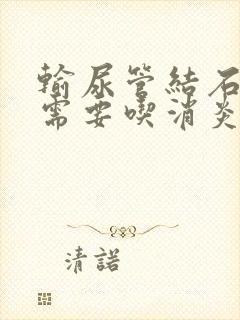 輸尿管結石
需要喫消炎
清諾